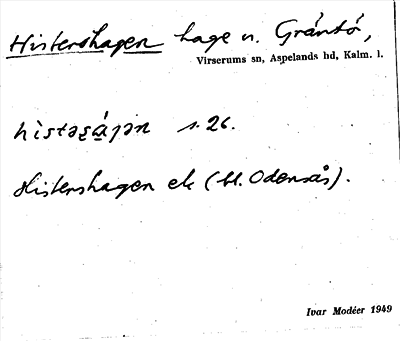 Histershagen hage u. Gråntó,
Virserums sn, Aspelands hd, Kalm. l.
histəʂájən s. 26.
Histershagen ek (bl. Odensås).
Ivar Modéer 1949